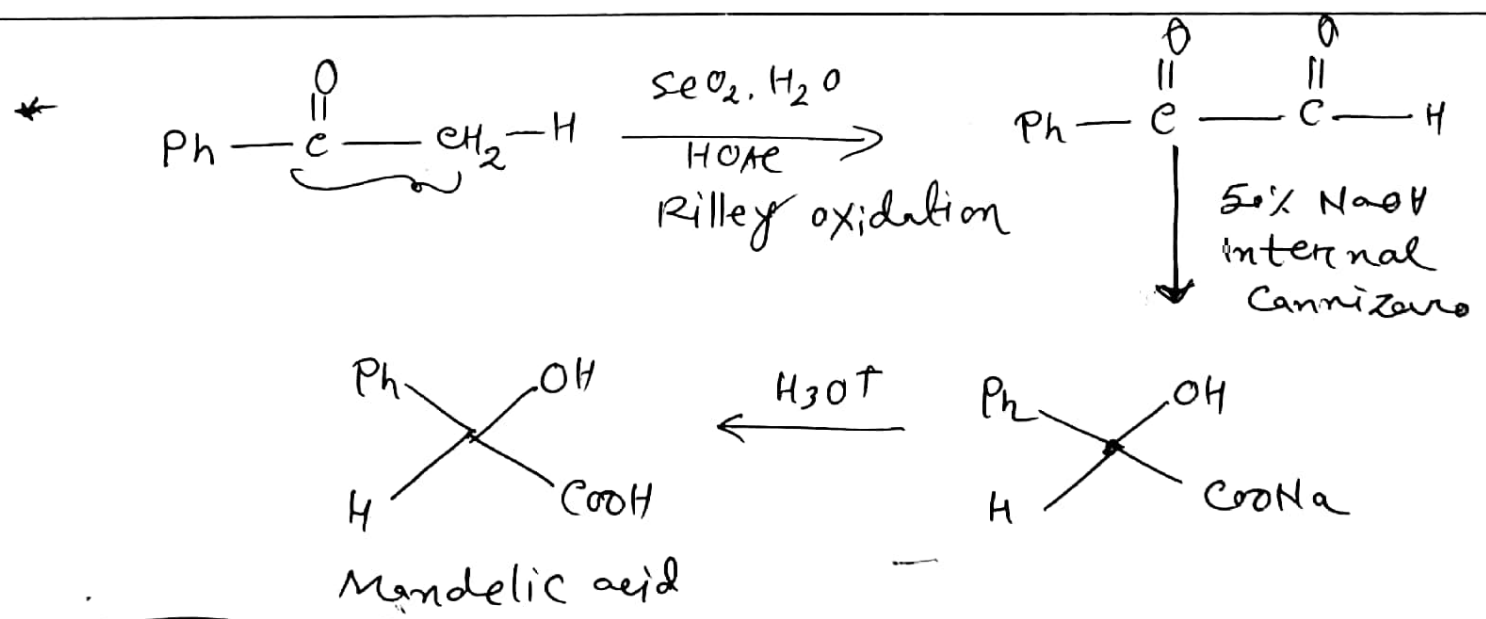 * Ph — C(=O) — CH2 — H
SeO2. H2O
HOAc
Rilley oxidation
Ph — C(=O) — C(=O) — H
50% NaOH
internal
Cannizaro
Ph OH
H COONa
H3O+
Ph OH
H COOH
Mandelic acid